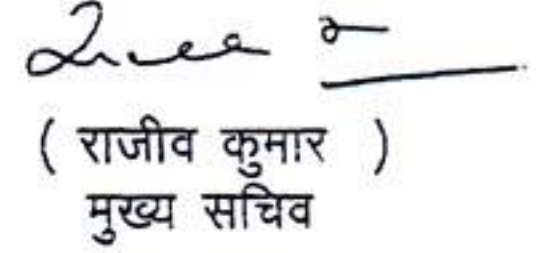 ( राजीव कुमार )
मुख्य सचिव